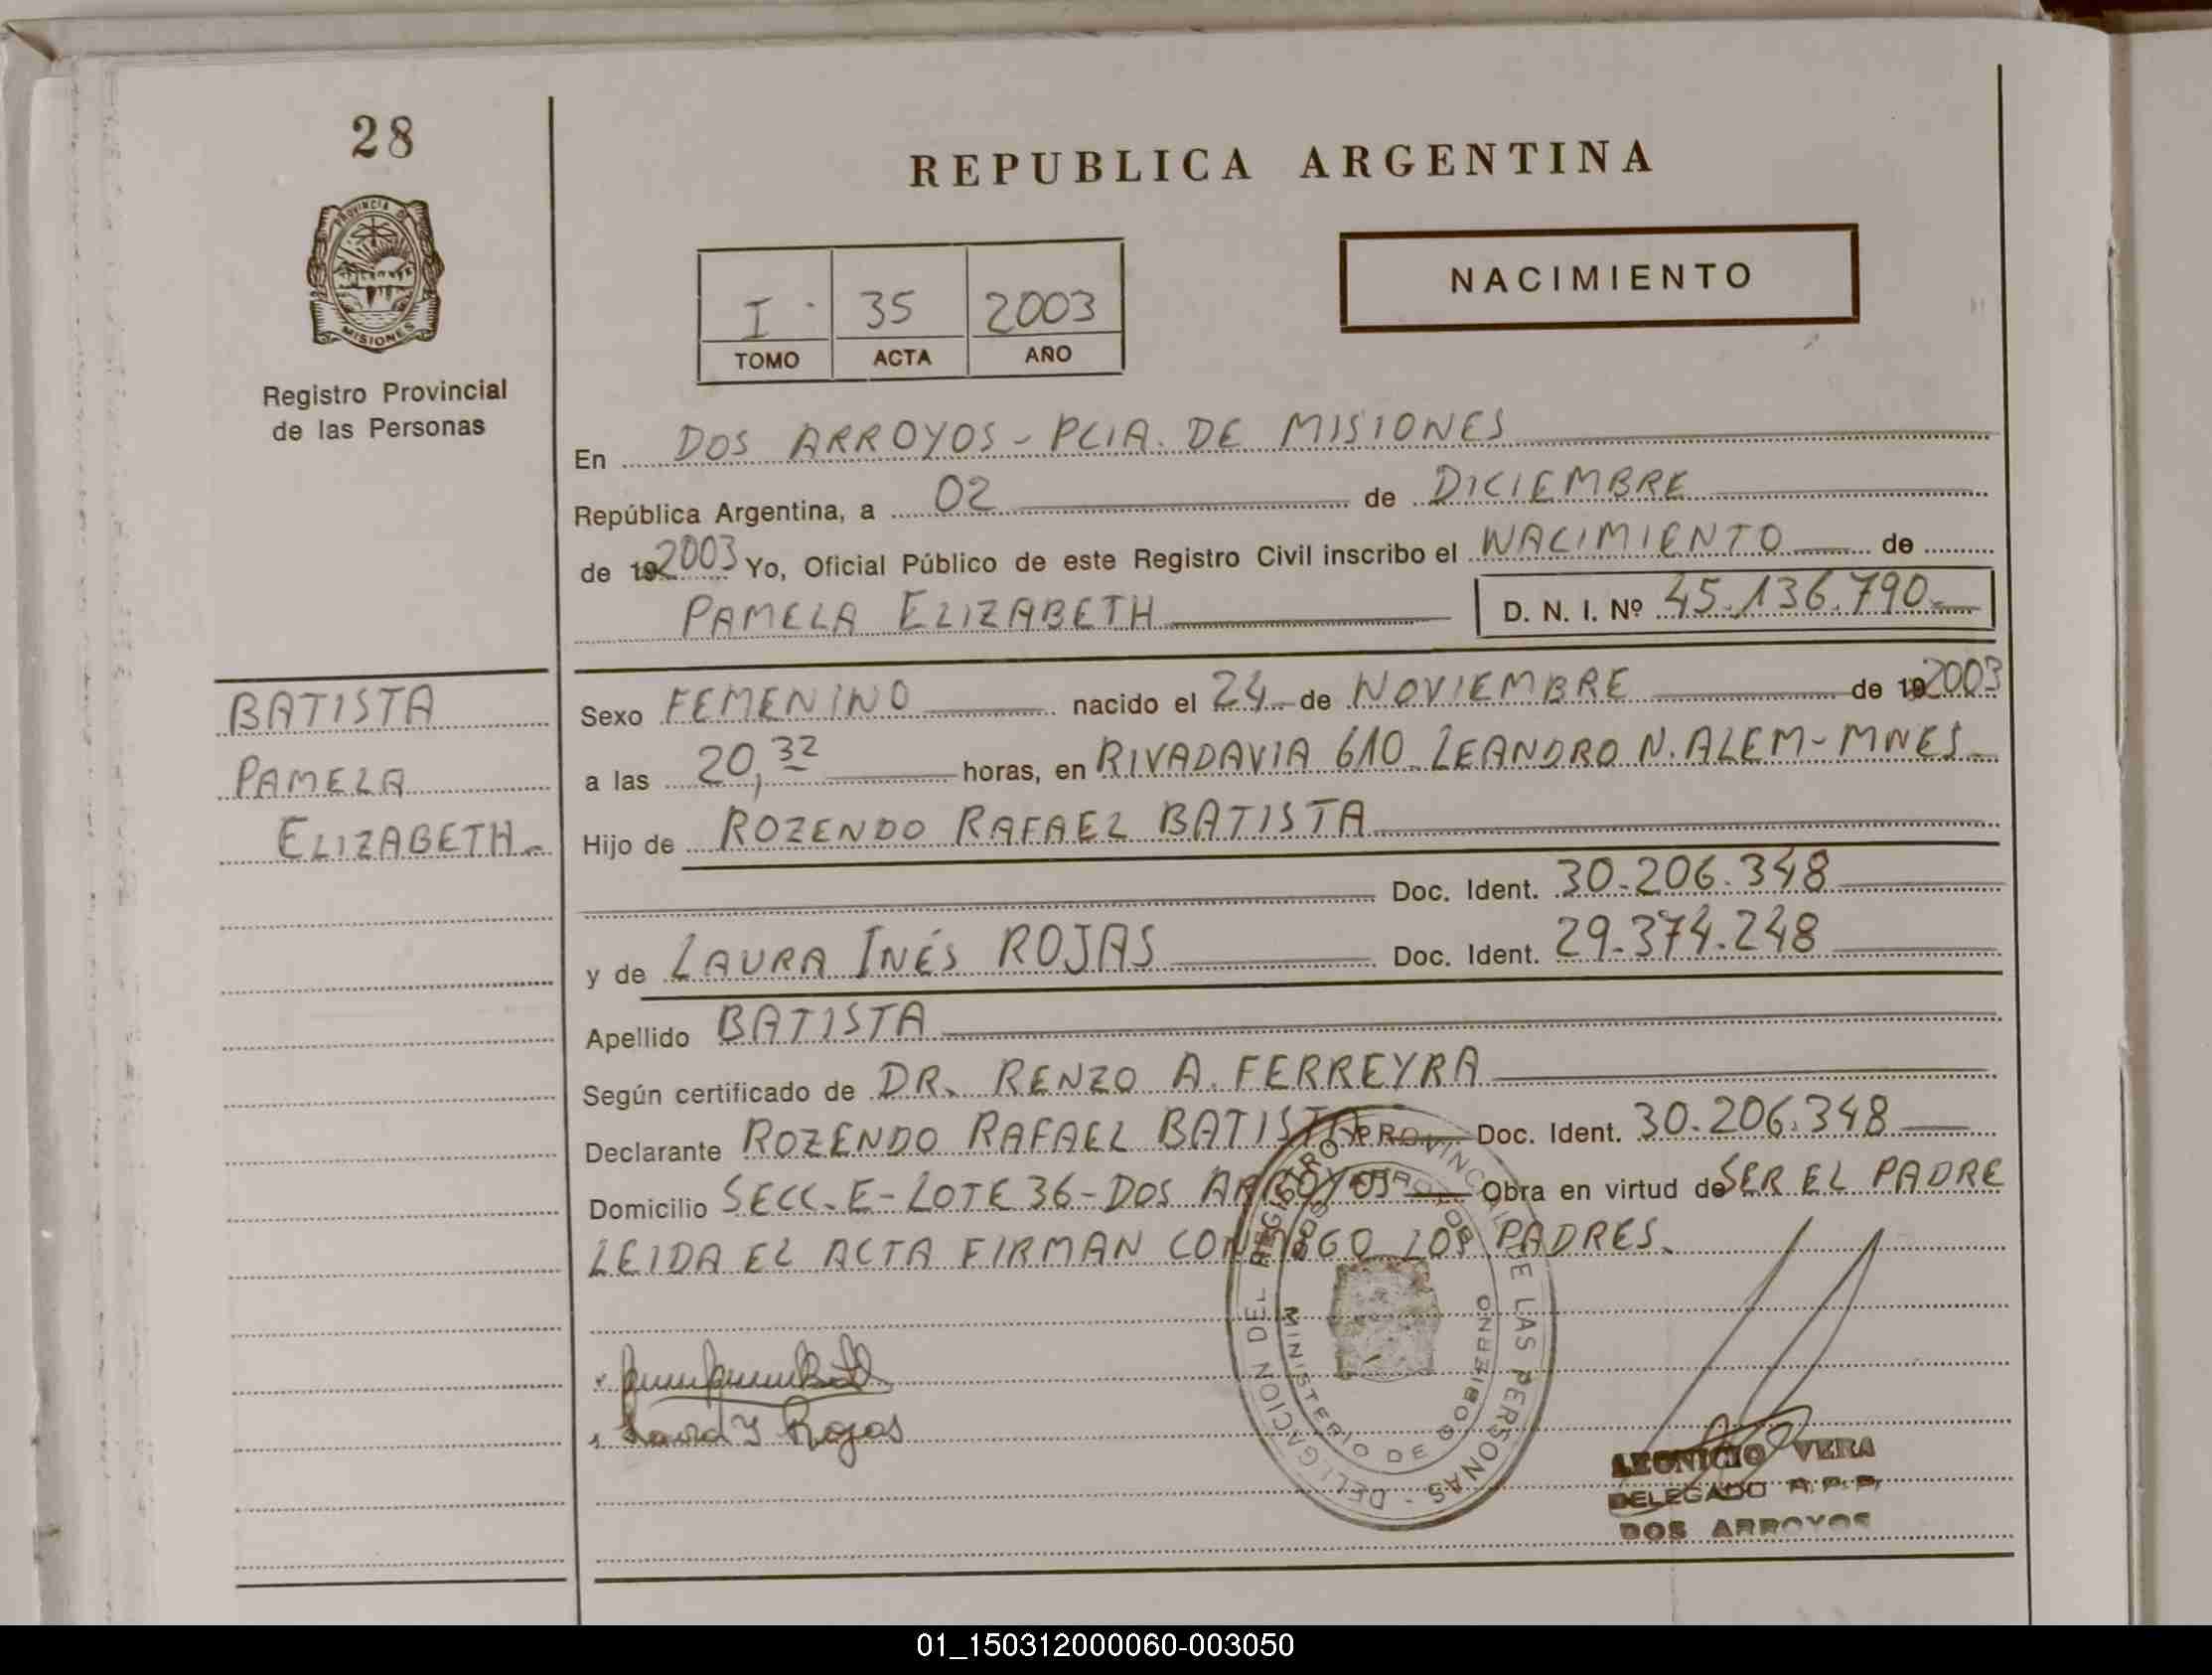 28
REPUBLICA ARGENTINA
PROVINCIA DE
MISIONES
Registro Provincial
de las Personas
I 35 2003
TOMO ACTA AÑO
NACIMIENTO
En DOS ARROYOS - PCIA. DE MISIONES
República Argentina, a 02 de DICIEMBRE
de 192003 Yo, Oficial Público de este Registro Civil inscribo el NACIMIENTO de
PAMELA ELIZABETH D. N. I. Nº 45.136.790.-
BATISTA
PAMELA
ELIZABETH.-
Sexo FEMENINO nacido el 24 de NOVIEMBRE de 192003
a las 20,32 horas, en RIVADAVIA 610 LEANDRO N. ALEM - MNES.
Hijo de ROZENDO RAFAEL BATISTA
Doc. Ident. 30.206.348
y de LAURA INÉS ROJAS Doc. Ident. 29.374.248
Apellido BATISTA
Según certificado de DR. RENZO A. FERREYRA
Declarante ROZENDO RAFAEL BATISTA Doc. Ident. 30.206.348
Domicilio SECC. E - LOTE 36 - DOS ARROYOS Obra en virtud de SER EL PADRE
LEIDA EL ACTA FIRMAN CONMIGO LOS PADRES.
DELEGACION DEL REGISTRO PROVINCIAL DE LAS PERSONAS -
DOS ARROYOS
MINISTERIO DE GOBIERNO
Laura I Rojas
LEONICIO VERA
DELEGADO R.P.P.
DOS ARROYOS
01_150312000060-003050